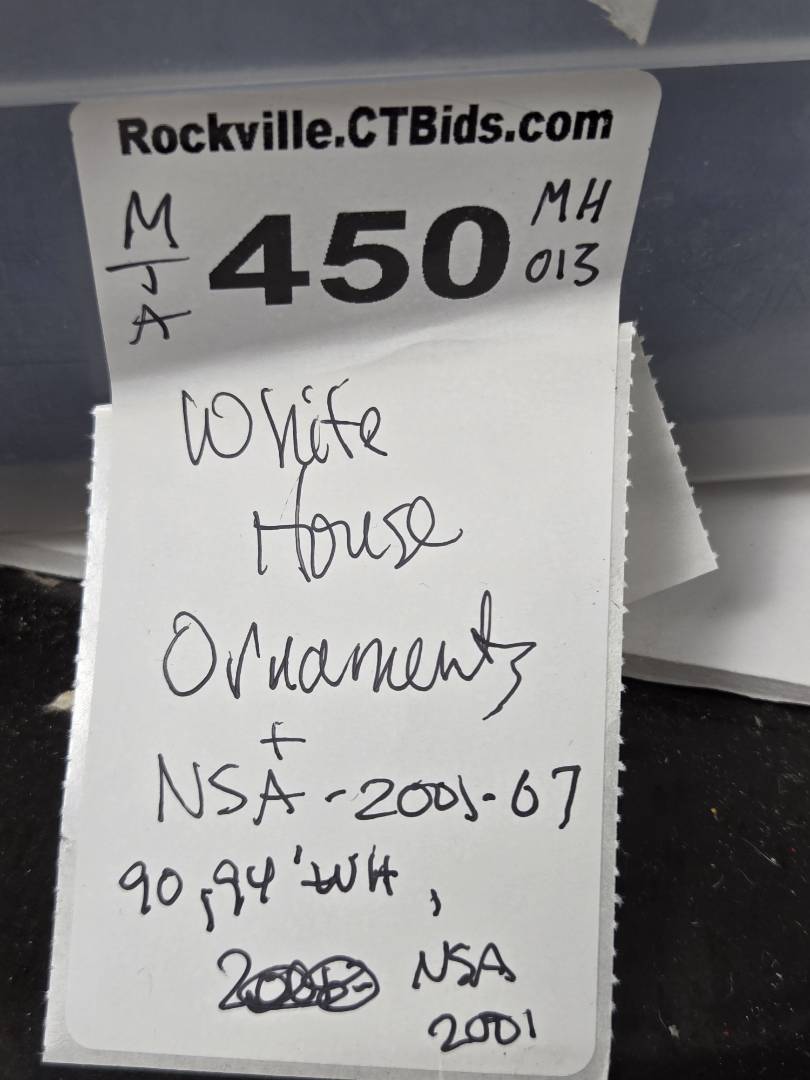 Rockville.CTBids.com
M
J
A
450
MH
013
White
House
Ornaments
+
NSA - 2001-07
90, 94' WH,
NSA
2001